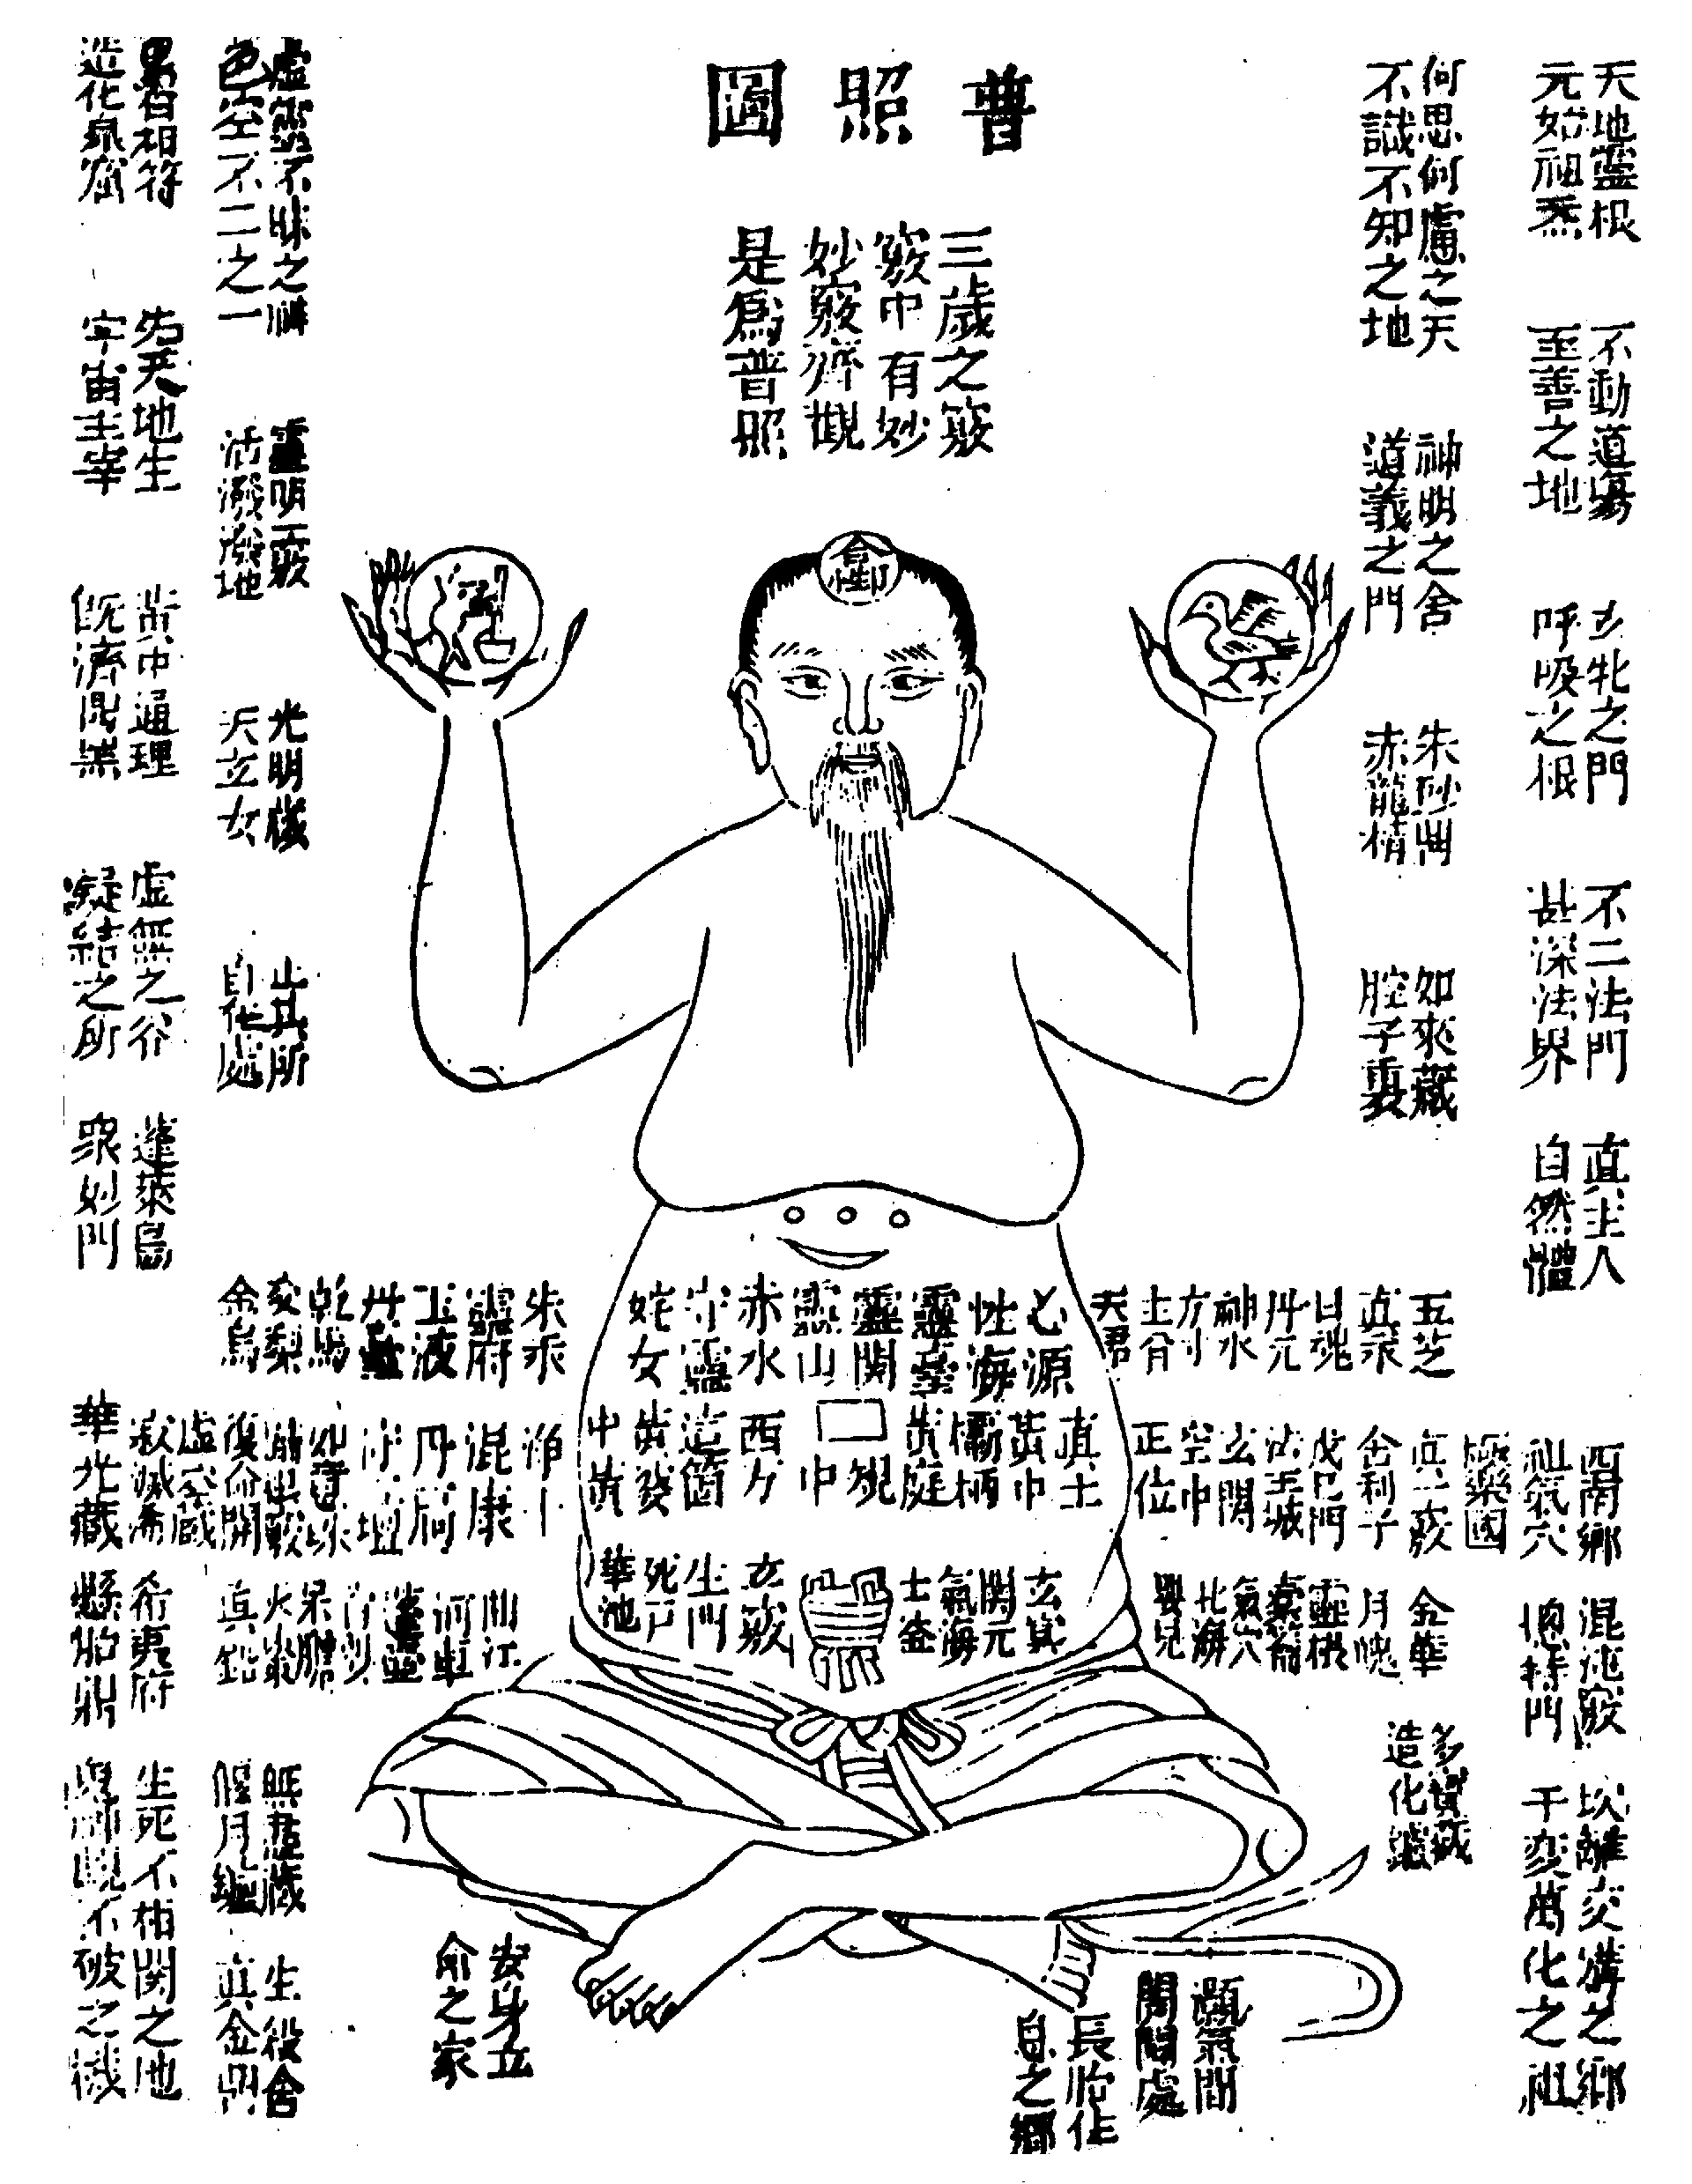 普照圖
三歲之竅
竅中有妙
妙竅齊觀
是爲普照
天地靈根
元始祖炁
不動道場
至善之地
牝之門
呼吸之根
不二法門
甚深法界
真主人
自然體
何思何慮之天
不識不知之地
神明之舍
道義之門
朱砂
赤龍精
如來藏
腔子裏
虛靈不昧之神
色空不二之一
靈明竅
活潑潑地
光明藏
天玄女
止其所
自在處
相符
造化泉窟
先天地生
宇宙主宰
黃中通理
既濟鼎器
虛無之谷
凝結之所
蓬萊島
眾妙門
五芝
真汞
日魂
丹元
神水
方寸
主人
天君
心源
性海
靈臺
靈關
靈山
赤水
守靈
姹女
朱汞
靈府
玉液
乾馬
交梨
金烏
西南鄉
祖氣穴
極樂國
真一竅
舍利子
戊己門
法王城
玄關
空中
正位
真土
黃中
欛柄
黃庭
規中
西方
這箇
黃婆
中黃
混康
守一壇
復命關
虛空藏
寂滅海
華光藏
混沌竅
總持門
金華
月魄
靈根
橐籥
氣穴
北海
嬰兒
玄冥
關元
氣海
土釜
玄竅
生門
死戶
華池
曲江
河車
真鉛
希夷府
懸胎鼎
多寶藏
造化爐
坎離交媾之鄉
千變萬化之祖
無盡藏
偃月爐
生殺舍
真金鼎
生死不相關之地
鬼神覷不破之機
灝氣門
開闔處
長胎住
息之鄉
安身立
命之家